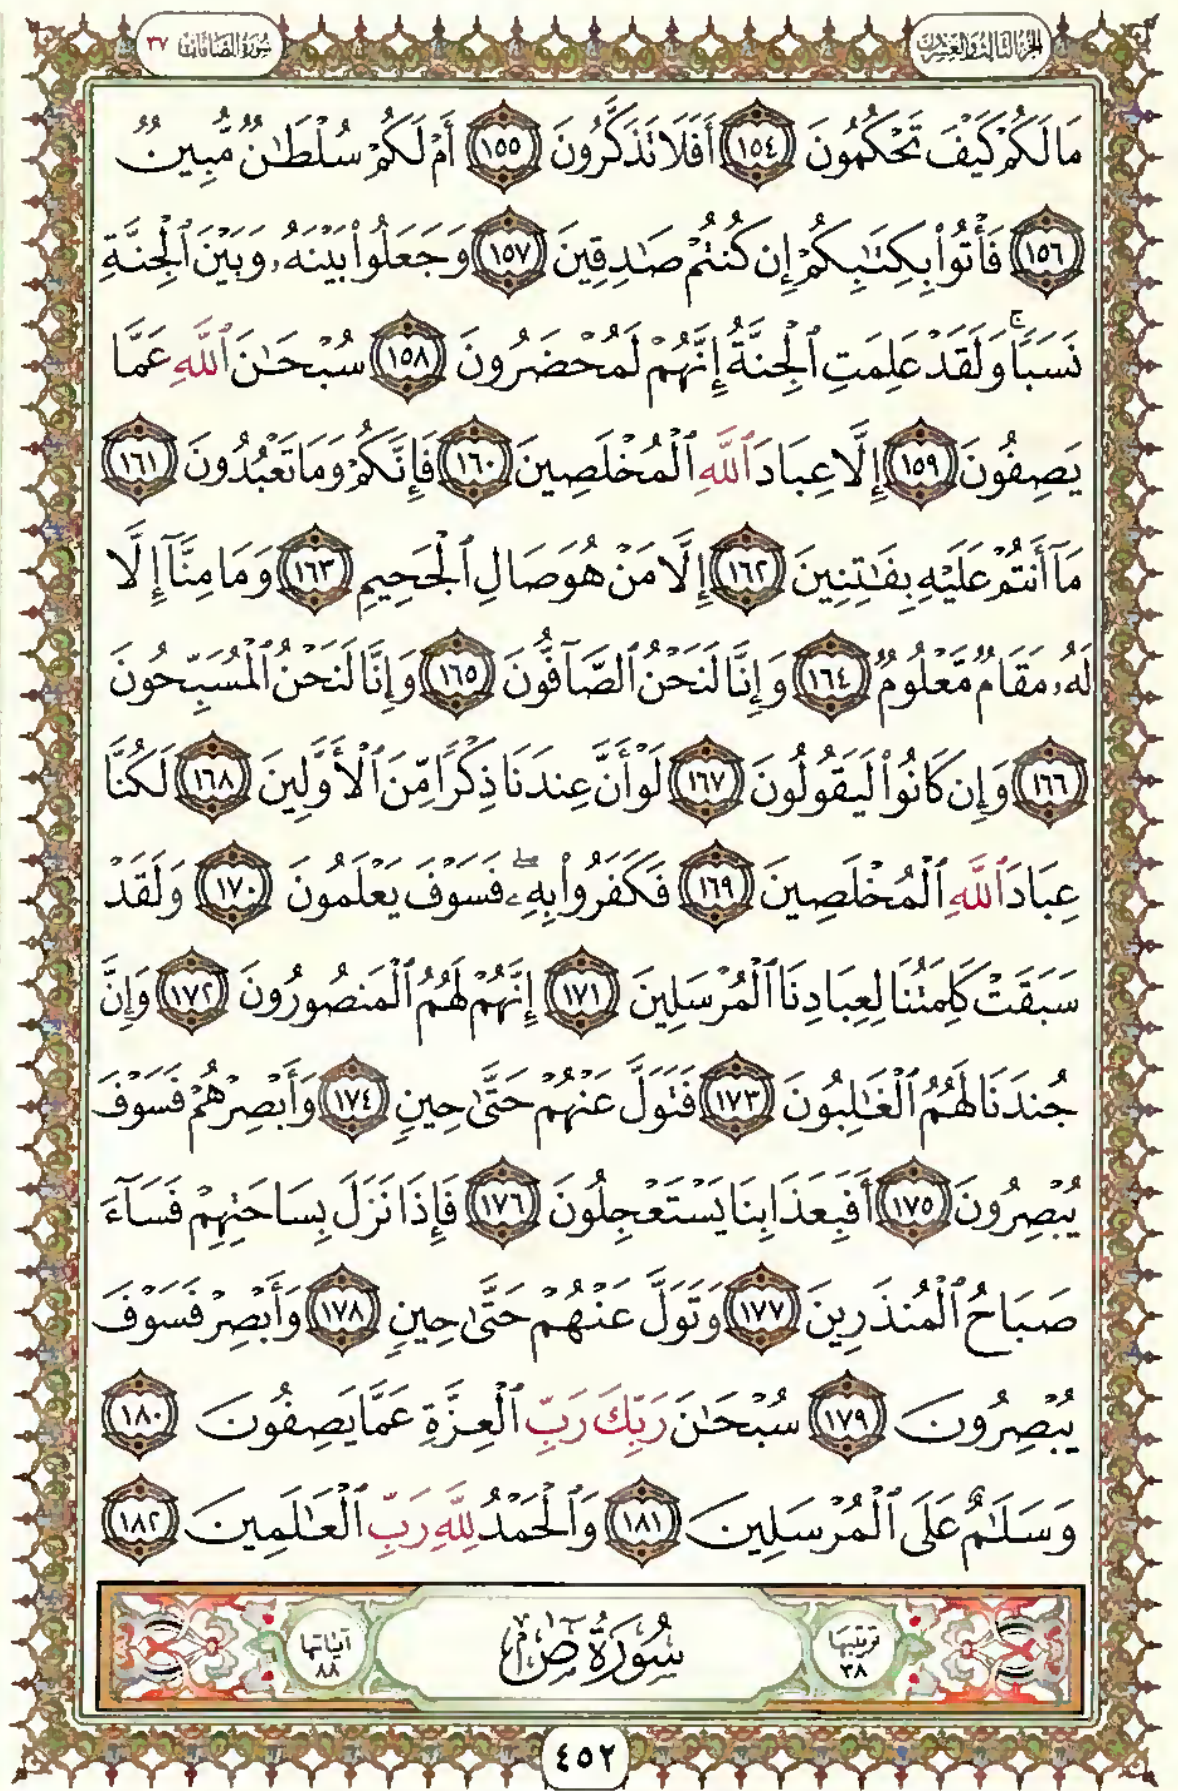 الجزء الثالث والعشرون
سورة الصافات ٣٧
مَا لَكُمْ كَيْفَ تَحْكُمُونَ ١٥٤ أَفَلَا تَذَكَّرُونَ ١٥٥ أَمْ لَكُمْ سُلْطَٰنٌ مُّبِينٌ
١٥٦ فَأْتُوا۟ بِكِتَٰبِكُمْ إِن كُنتُمْ صَٰدِقِينَ ١٥٧ وَجَعَلُوا۟ بَيْنَهُۥ وَبَيْنَ ٱلْجِنَّةِ
نَسَبًا ۚ وَلَقَدْ عَلِمَتِ ٱلْجِنَّةُ إِنَّهُمْ لَمُحْضَرُونَ ١٥٨ سُبْحَٰنَ ٱللَّهِ عَمَّا
يَصِفُونَ ١٥٩ إِلَّا عِبَادَ ٱللَّهِ ٱلْمُخْلَصِينَ ١٦٠ فَإِنَّكُمْ وَمَا تَعْبُدُونَ ١٦١
مَآ أَنتُمْ عَلَيْهِ بِفَٰتِنِينَ ١٦٢ إِلَّا مَنْ هُوَ صَالِ ٱلْجَحِيمِ ١٦٣ وَمَا مِنَّآ إِلَّا
لَهُۥ مَقَامٌ مَّعْلُومٌ ١٦٤ وَإِنَّا لَنَحْنُ ٱلصَّآفُّونَ ١٦٥ وَإِنَّا لَنَحْنُ ٱلْمُسَبِّحُونَ
١٦٦ وَإِن كَانُوا۟ لَيَقُولُونَ ١٦٧ لَوْ أَنَّ عِندَنَا ذِكْرًا مِّنَ ٱلْأَوَّلِينَ ١٦٨ لَكُنَّا
عِبَادَ ٱللَّهِ ٱلْمُخْلَصِينَ ١٦٩ فَكَفَرُوا۟ بِهِۦ ۖ فَسَوْفَ يَعْلَمُونَ ١٧٠ وَلَقَدْ
سَبَقَتْ كَلِمَتُنَا لِعِبَادِنَا ٱلْمُرْسَلِينَ ١٧١ إِنَّهُمْ لَهُمُ ٱلْمَنصُورُونَ ١٧٢ وَإِنَّ
جُندَنَا لَهُمُ ٱلْغَٰلِبُونَ ١٧٣ فَتَوَلَّ عَنْهُمْ حَتَّىٰ حِينٍ ١٧٤ وَأَبْصِرْهُمْ فَسَوْفَ
يُبْصِرُونَ ١٧٥ أَفَبِعَذَابِنَا يَسْتَعْجِلُونَ ١٧٦ فَإِذَا نَزَلَ بِسَاحَتِهِمْ فَسَآءَ
صَبَاحُ ٱلْمُنذَرِينَ ١٧٧ وَتَوَلَّ عَنْهُمْ حَتَّىٰ حِينٍ ١٧٨ وَأَبْصِرْ فَسَوْفَ
يُبْصِرُونَ ١٧٩ سُبْحَٰنَ رَبِّكَ رَبِّ ٱلْعِزَّةِ عَمَّا يَصِفُونَ ١٨٠
وَسَلَٰمٌ عَلَى ٱلْمُرْسَلِينَ ١٨١ وَٱلْحَمْدُ لِلَّهِ رَبِّ ٱلْعَٰلَمِينَ ١٨٢
ترتيبها ٣٨
سُورَةُ صٓ
آياتها ٨٨
٤٥٢